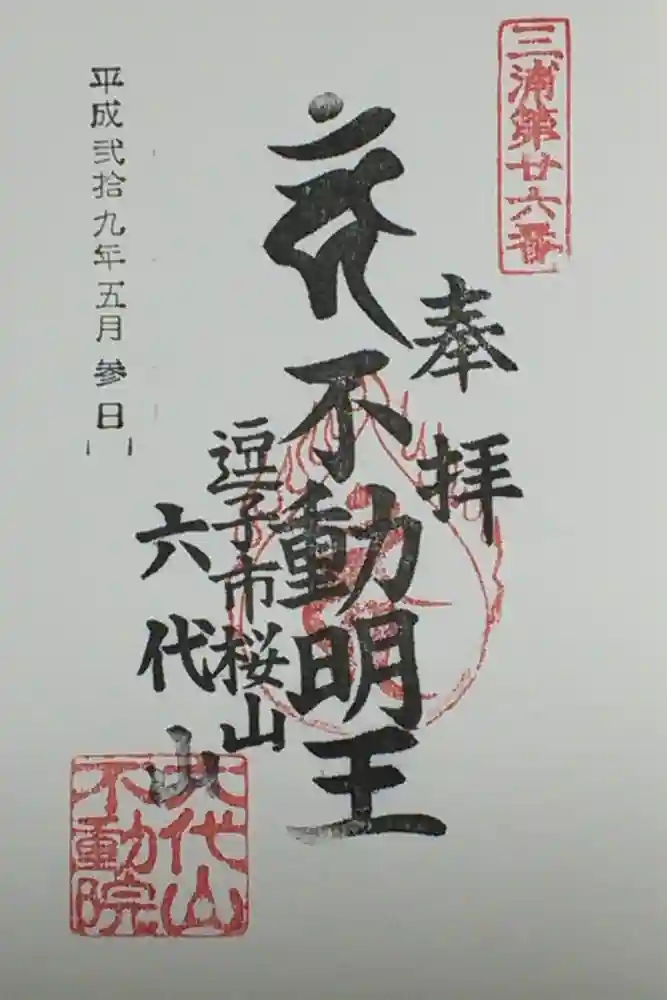 三浦第廿六番
奉拝
不動明王
逗子市桜山
六代山
平成弐拾九年五月参日
六代山
不動院